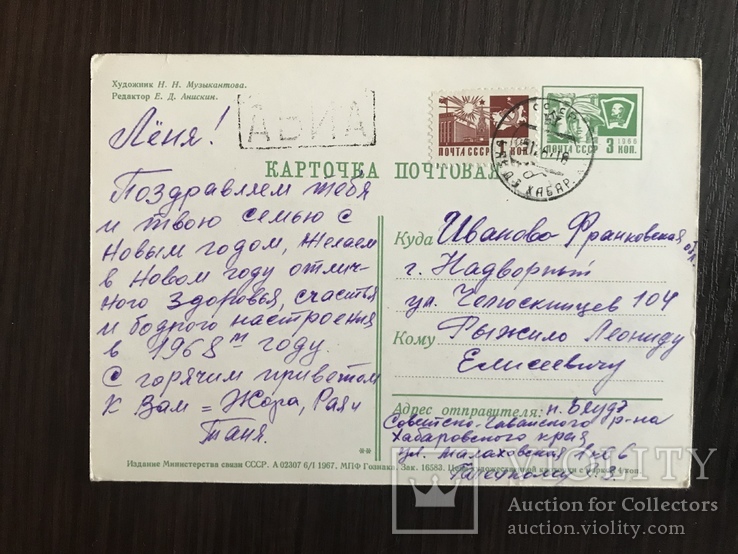 Художник Н. Н. Музыкантова.
Редактор Е. Д. Анискин.
АВИА
ПОЧТА СССР
1 КОП.
ПОЧТА СССР
1966
3 КОП.
КАРТОЧКА ПОЧТОВАЯ
Лёня!
Поздравляем тебя
и твою семью с
Новым годом, Желаем
в Новом году отлич-
ного здоровья, счастья
и бодрого настроения
в 1968 m году.
С горячим приветом
к Вам = Жора, Рая и
Таня.
Куда Иваново-Франковская обл.
г. Надворный
ул. Челюскинцев 104
Кому Рыжило Леониду
Елисеевичу
Адрес отправителя: п. Бяудэ
Советско-Гаванского р-на
Хабаровского края
ул. Малаховская
**
Издание Министерства связи СССР. А 02307 6/I 1967. МПФ Гознака. Зак. 16583.
VIOLITY
Auction for Collectors
auction.violity.com